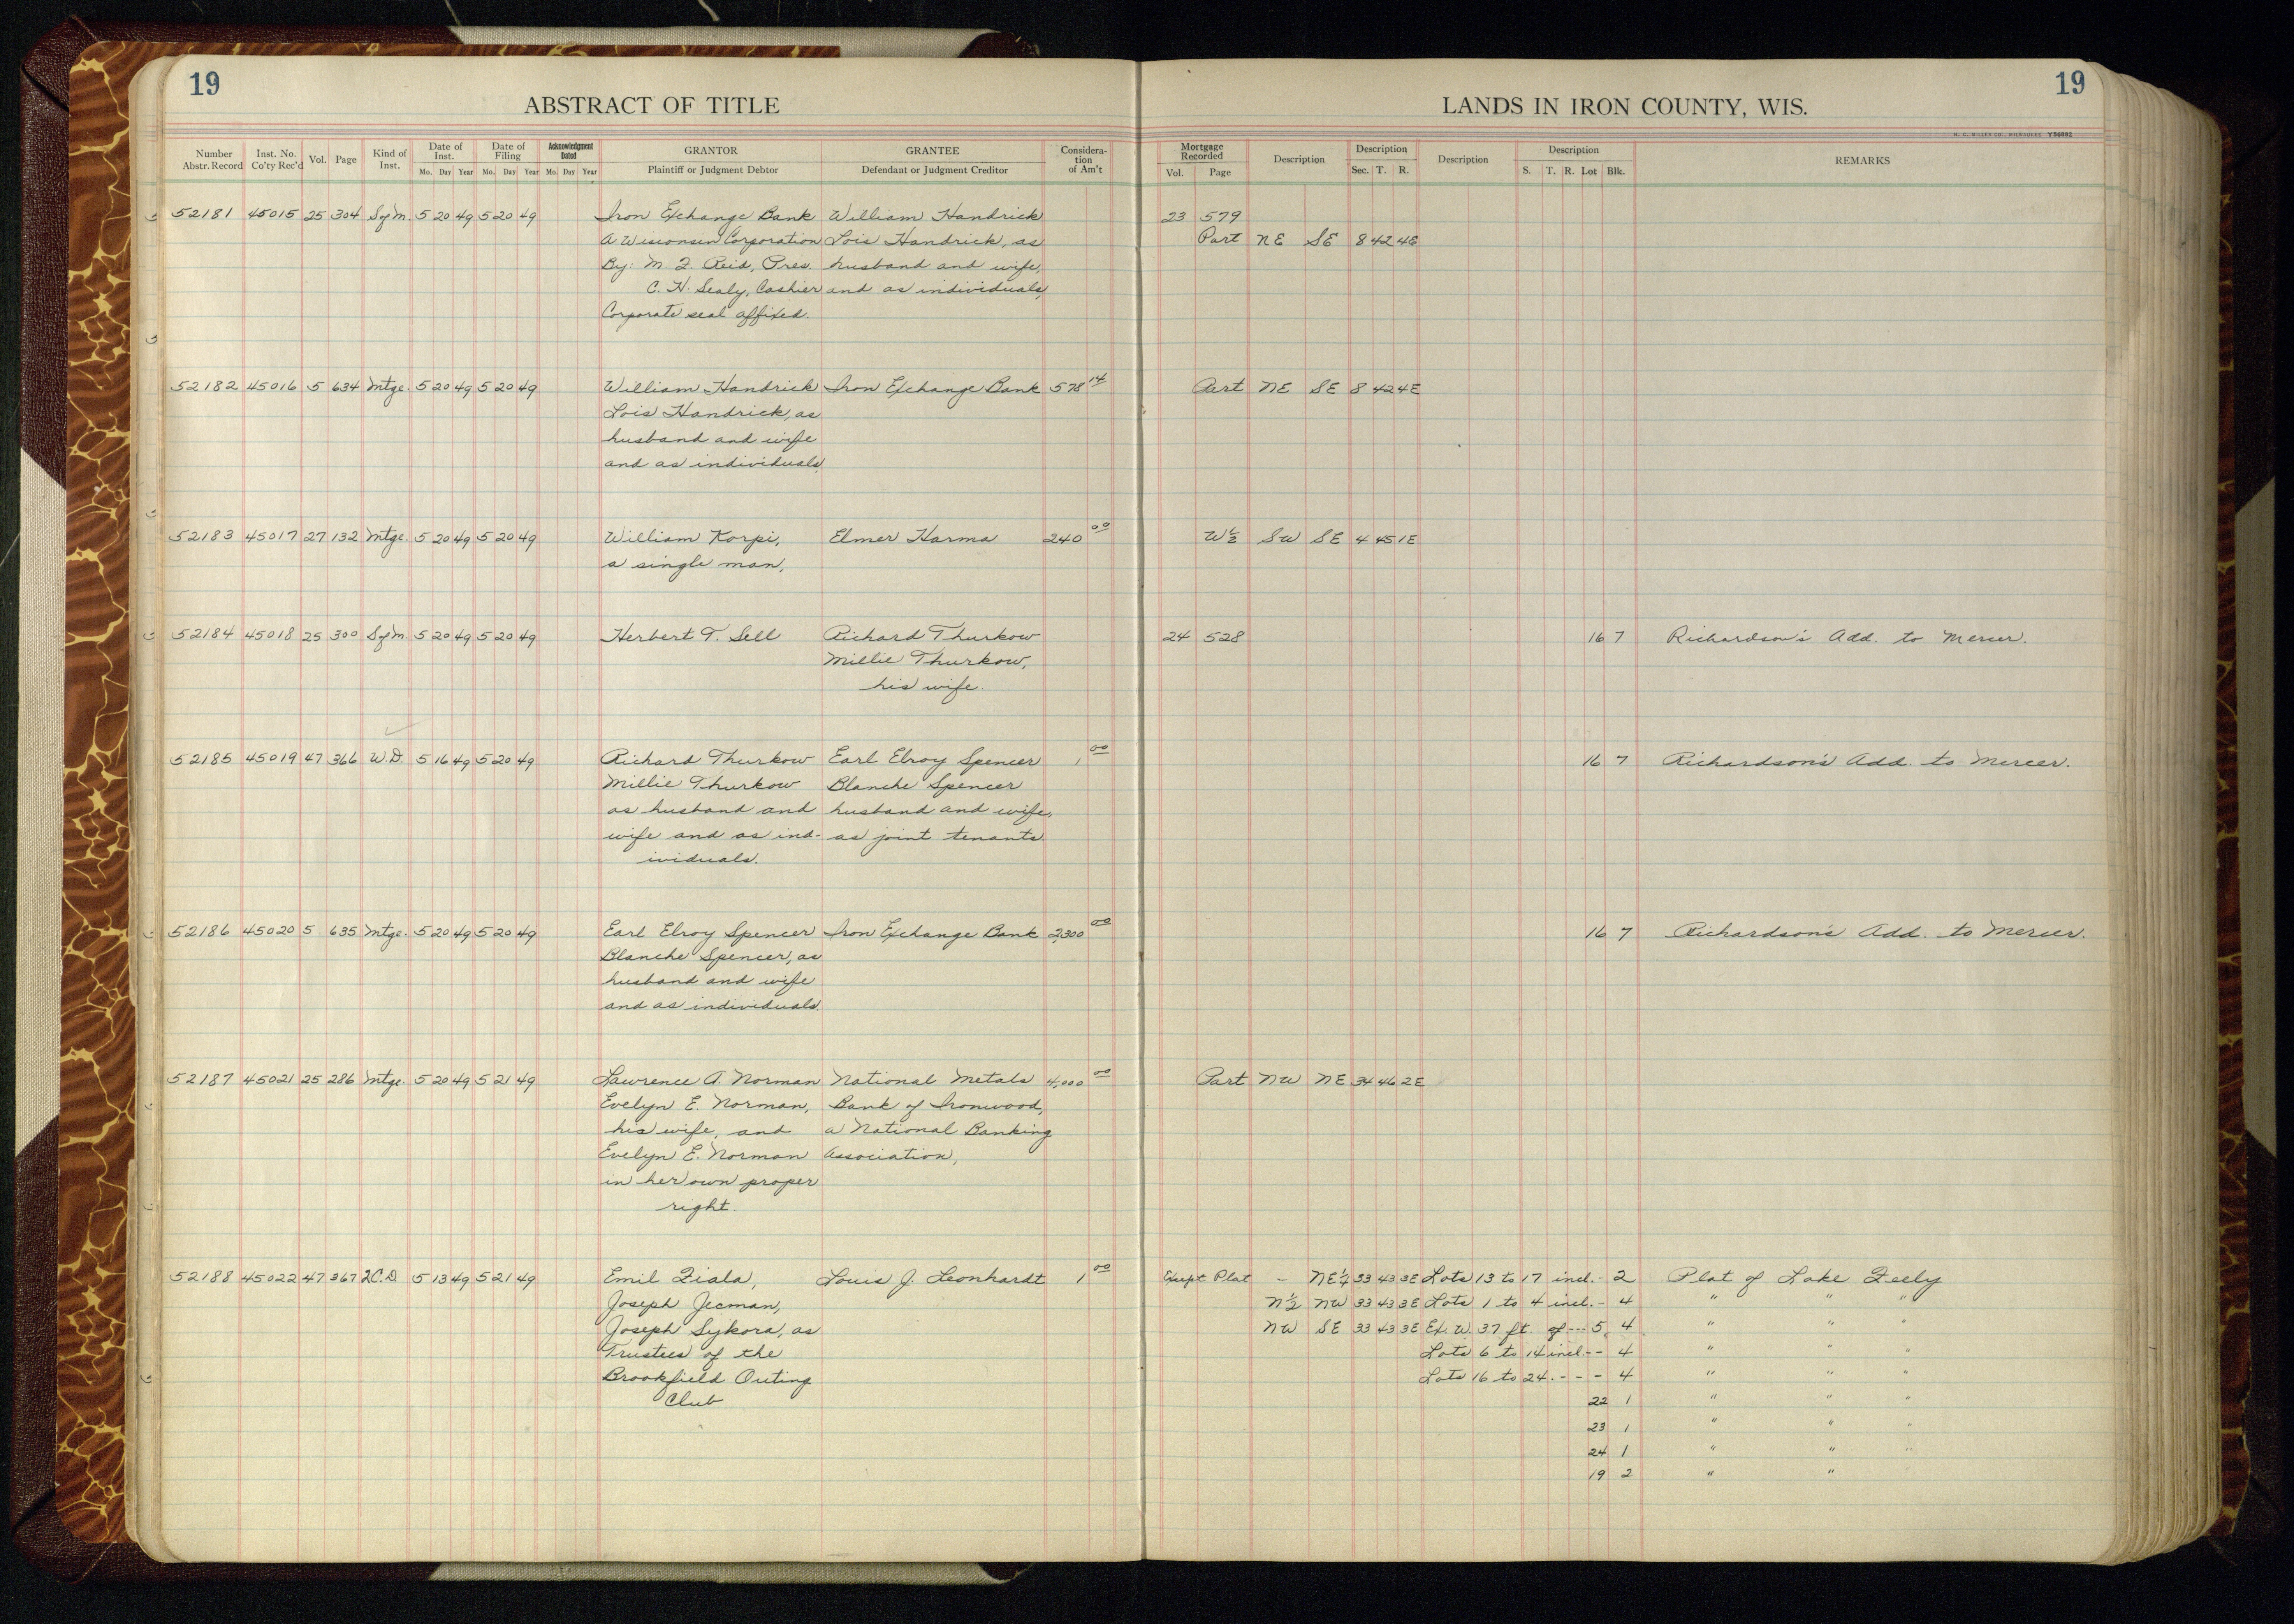 19
19
ABSTRACT OF TITLE
LANDS IN IRON COUNTY, WIS.
H. C. MILLER CO., MILWAUKEE Y36882
Number Abstr. Record Inst. No. Co'ty Rec'd Vol. Page Kind of Inst. Date of Inst. Mo. Day Year Date of Filing Mo. Day Year Acknowledgment Dated Mo. Day Year GRANTOR Plaintiff or Judgment Debtor GRANTEE Defendant or Judgment Creditor Considera-tion of Am't Mortgage Recorded Vol. Page Description Description Sec. T. R. Description Description S. T. R. Lot Blk. REMARKS
52181 45015 25 304 SofM. 5 20 49 5 20 49 Iron Exchange Bank William Handrick 23 579
A Wisconsin Corporation Lois Handrick, as Part NE SE 8 42 4E
By: M. J. Reid, Pres. husband and wife,
C. H. Sealy, Cashier and as individuals,
Corporate seal affixed.
52182 45016 5 634 Mtge. 5 20 49 5 20 49 William Handrick Iron Exchange Bank 578 14 Part NE SE 8 42 4E
Lois Handrick, as
husband and wife
and as individuals,
52183 45017 27 132 Mtge. 5 20 49 5 20 49 William Korpi, Elmer Harma 240 00 W½ SW SE 4 45 1E
a single man,
52184 45018 25 300 SofM. 5 20 49 5 20 49 Herbert T. Sell Richard Thurkow 24 528 16 7 Richardson's Add. to Mercer.
Millie Thurkow,
his wife.
52185 45019 47 366 W.D. 5 16 49 5 20 49 Richard Thurkow Earl Elroy Spencer 1 00 16 7 Richardson's Add. to Mercer.
Millie Thurkow Blanche Spencer
as husband and husband and wife,
wife and as ind- as joint tenants.
ividuals.
52186 45020 5 635 Mtge. 5 20 49 5 20 49 Earl Elroy Spencer Iron Exchange Bank 2,300 00 16 7 Richardson's Add. to Mercer.
Blanche Spencer, as
husband and wife
and as individuals.
52187 45021 25 286 Mtge. 5 20 49 5 21 49 Lawrence A. Norman National Metals 4,000 00 Part NW NE 34 46 2E
Evelyn E. Norman, Bank of Ironwood,
his wife, and a National Banking
Evelyn E. Norman Association,
in her own proper
right.
52188 45022 47 367 2C.D. 5 13 49 5 21 49 Emil Fiala, Louis J. Leonhardt 1 00 Except Plat - NE¼ 33 43 3E Lots 13 to 17 incl. - 2 Plat of Lake Feely
Joseph Jecman, N½ NW 33 43 3E Lots 1 to 4 incl. - 4 " " "
Joseph Sykora, as NW SE 33 43 3E Ex. W. 37 ft. of --- 5, 4 " " "
Trustees of the Lots 6 to 14 incl. -- 4 " " "
Brookfield Outing Lots 16 to 24. - - - 4 " " "
Club 22 1 " " "
23 1 " " "
24 1 " " "
19 2 " "